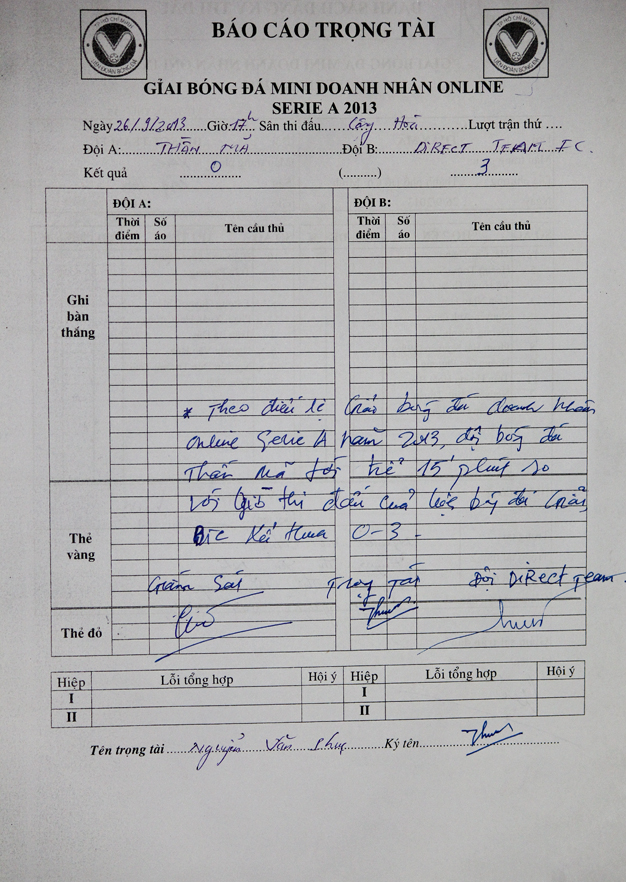 TP HỒ CHÍ MINH
LIÊN ĐOÀN BÓNG ĐÁ
BÁO CÁO TRỌNG TÀI
TP HỒ CHÍ MINH
LIÊN ĐOÀN BÓNG ĐÁ
GIẢI BÓNG ĐÁ MINI DOANH NHÂN ONLINE
SERIE A 2013
Ngày 26/9/2013 Giờ: 17h Sân thi đấu Cây Lượt trận thứ ....
Đội A: THẦN MÃ Đội B: DIRECT TEAM FC.
Kết quả 0 (..........) 3
ĐỘI A: ĐỘI B:
Thời điểm Số áo Tên cầu thủ Thời điểm Số áo Tên cầu thủ
Ghi bàn thắng
* Theo điều lệ Giải bóng đá doanh nhân
online Serie A năm 2013, đội bóng đá
Thần Mã tới trễ 15' phút so
với giờ thi đấu của trận
Thẻ vàng
thua 0-3.
Giám Sát Trọng Tài Đội DiRect Team.
Thẻ đỏ
Hiệp Lỗi tổng hợp Hội ý Hiệp Lỗi tổng hợp Hội ý
I I
II II
Tên trọng tài Nguyễn Văn Phục Ký tên